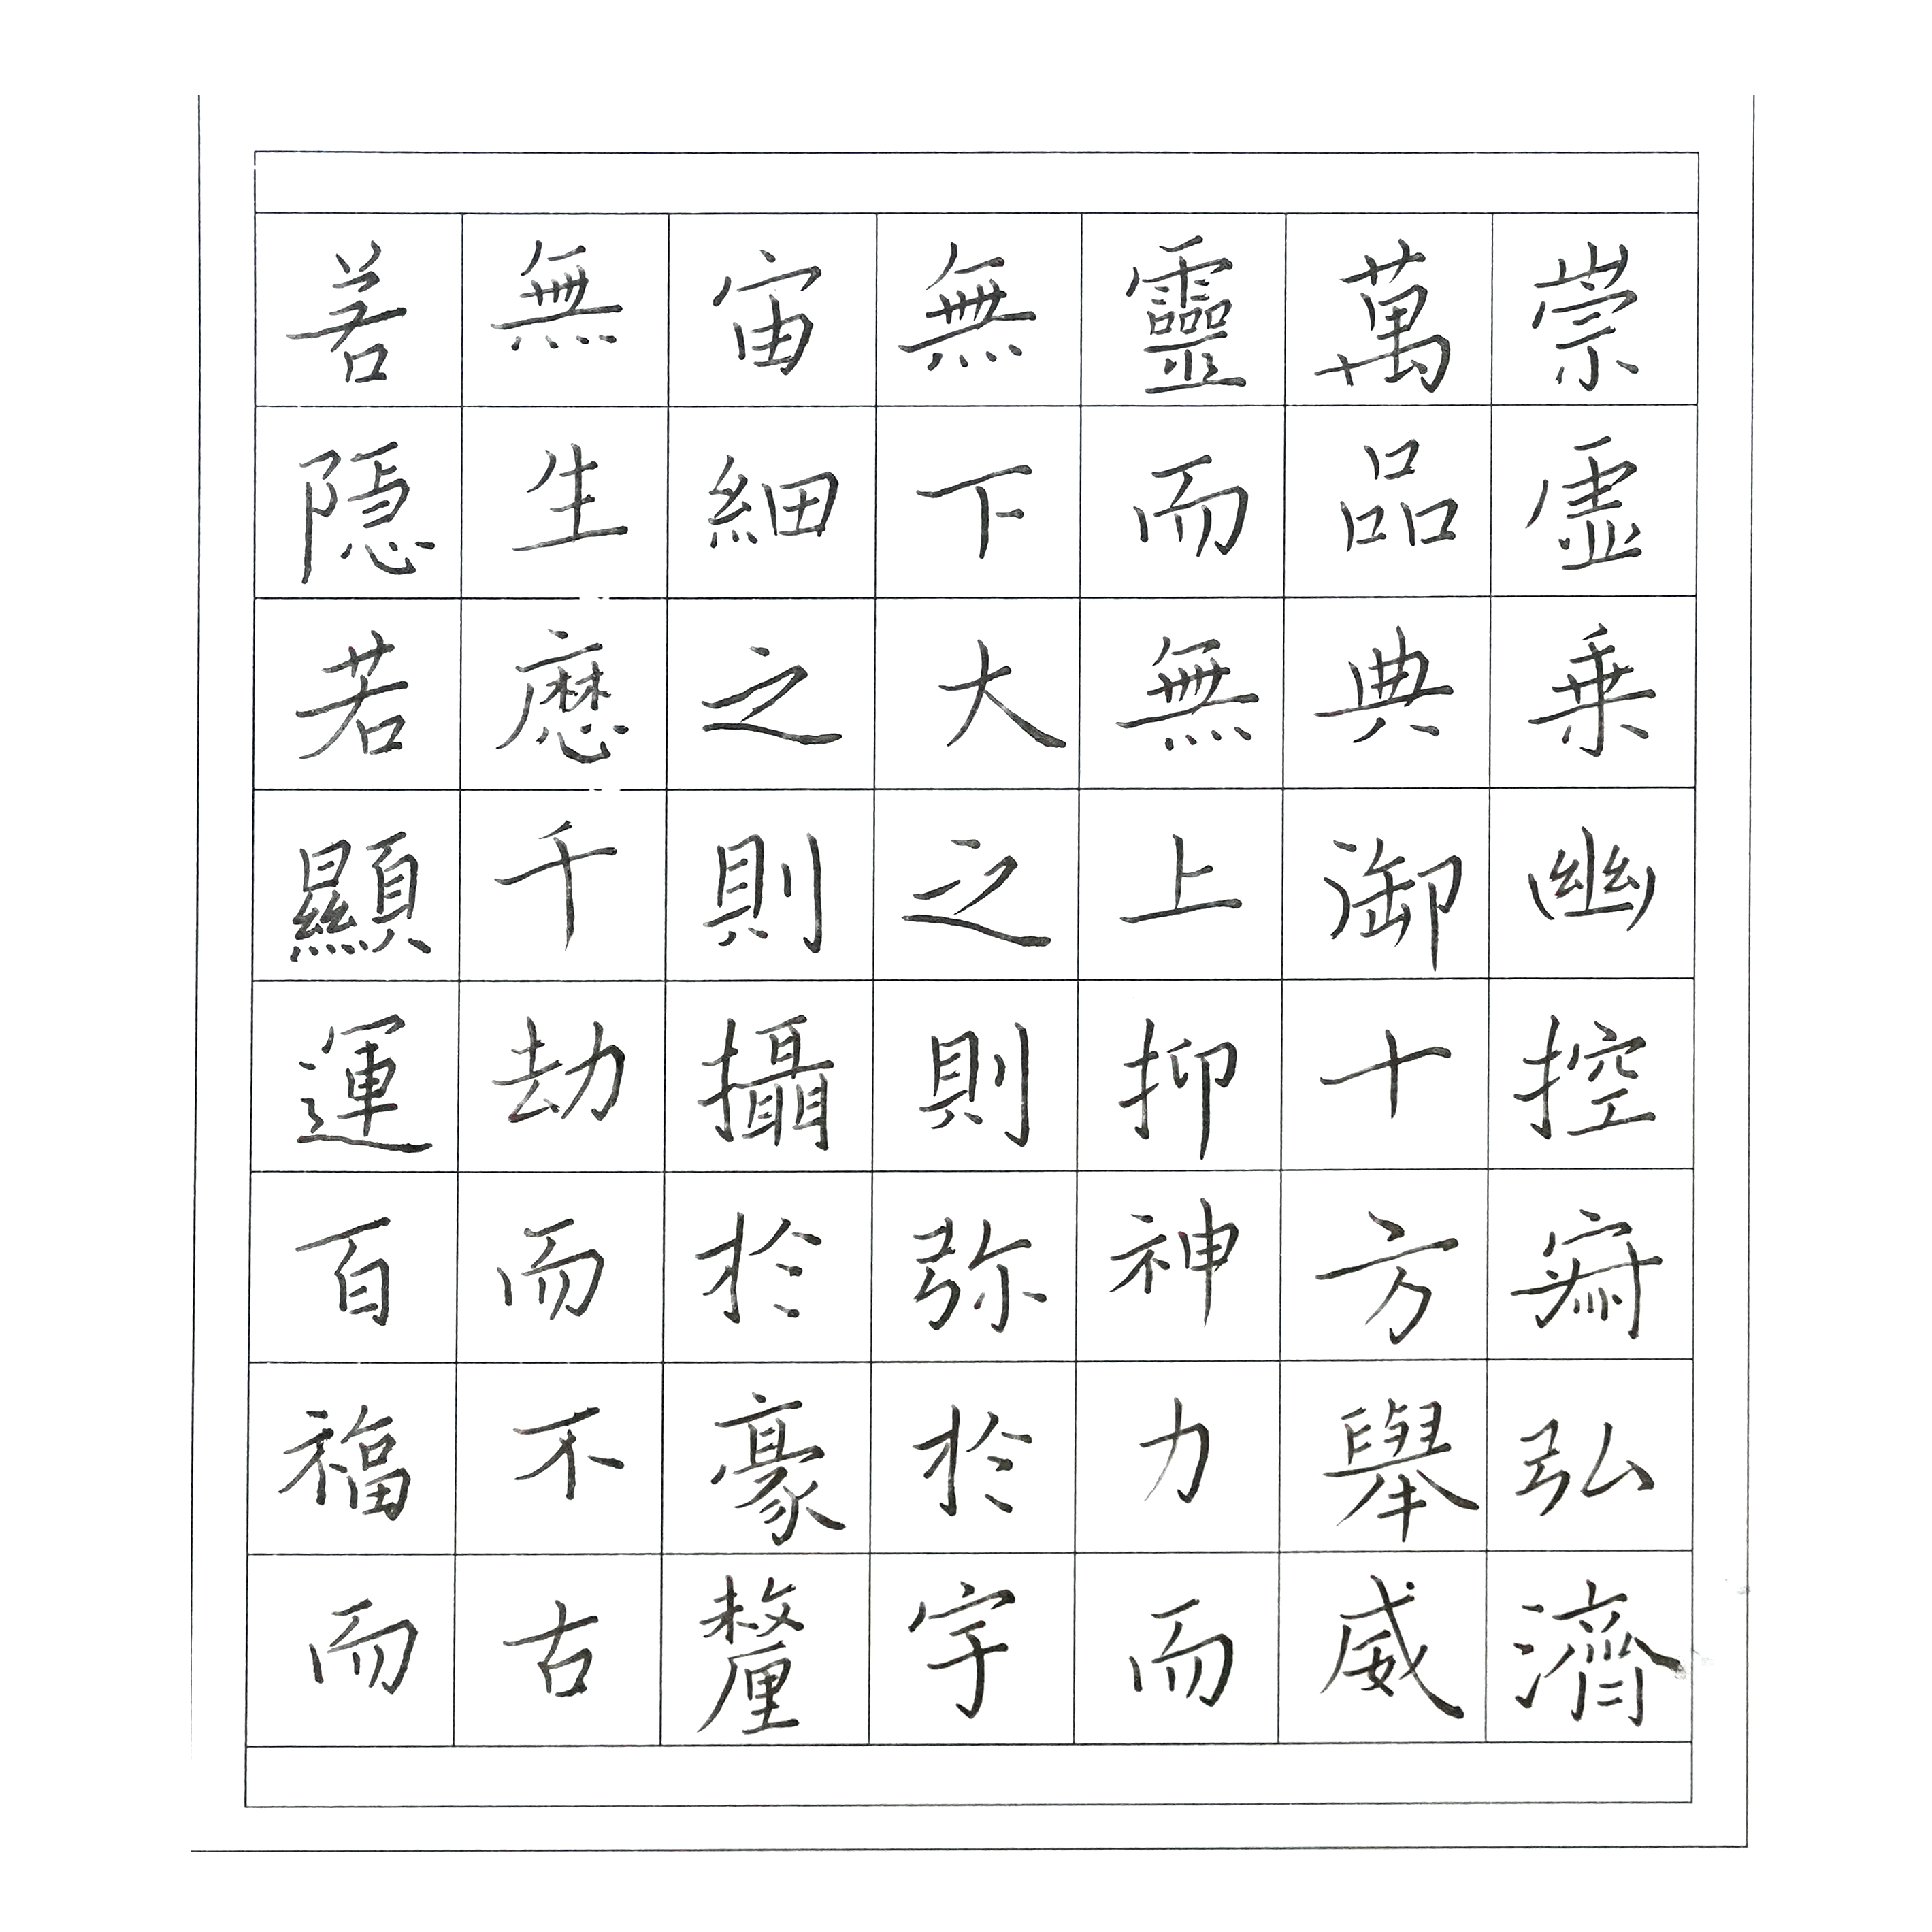 崇虛乗幽控寂弘濟
萬品典御十方舉威
靈而無上抑神力而
無下大之則弥於宇
宙細之則攝於豪釐
無生歷千劫而不古
若隱若顯運百福而